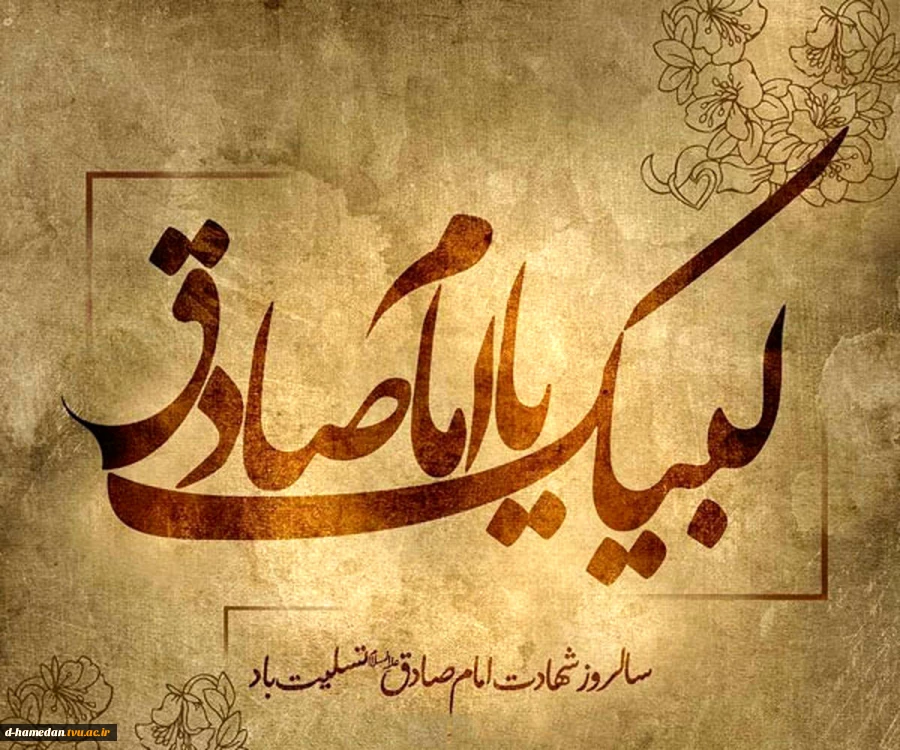 لبیک یا امام صادق
سالروز شهادت امام صادق علیه‌السلام تسلیت باد
d-hamedan.tvu.ac.ir